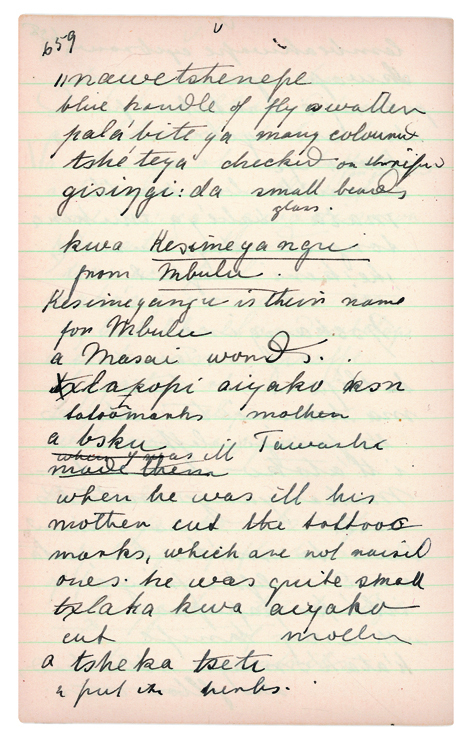 659
"nawetshenepe
blue handle of fly swatter
palá bite ya many coloured
tshé teya checked on striped
gisingi:da small beads
glass.
kwa Kesimeyangu
from Mbulu.
Kesimeyangu is their name
for Mbulu
a Masai word.
tslapopi aiyako ksn
tatoomarks mother
a bsku Tawashe
when he was ill his
mother cut the tattooo
marks, which are not raised
ones. he was quite small
tslaka kwa aiyako
cut mother
a tsheka tseti
& put in herbs.